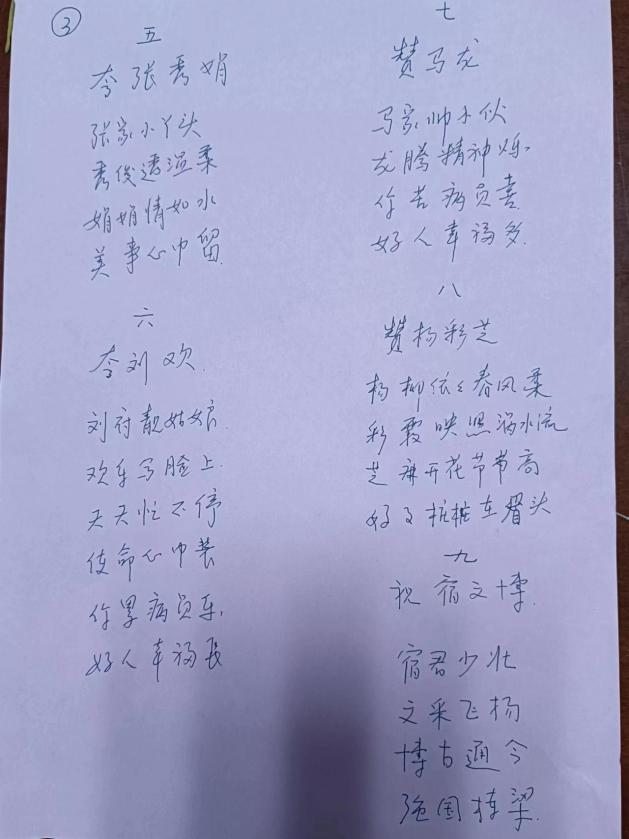 ③
五
夸张秀娟
张家小丫头
秀俊透温柔
娟娟情如水
美事心中留.
六
夸刘欢.
刘府靓姑娘.
欢乐写脸上.
天天忙不停
使命心中装
你累病员乐,
好人幸福长
七
赞马龙
马家帅小伙
龙腾精神烁.
你苦病员喜.
好人幸福多.
八
赞杨彩芝
杨柳依々春风柔
彩霞映照涡水流
芝麻开花节节高
好事桩桩在眉头
九
祝宿文博.
宿君少壮
文采飞杨
博古通今
强国栋梁.